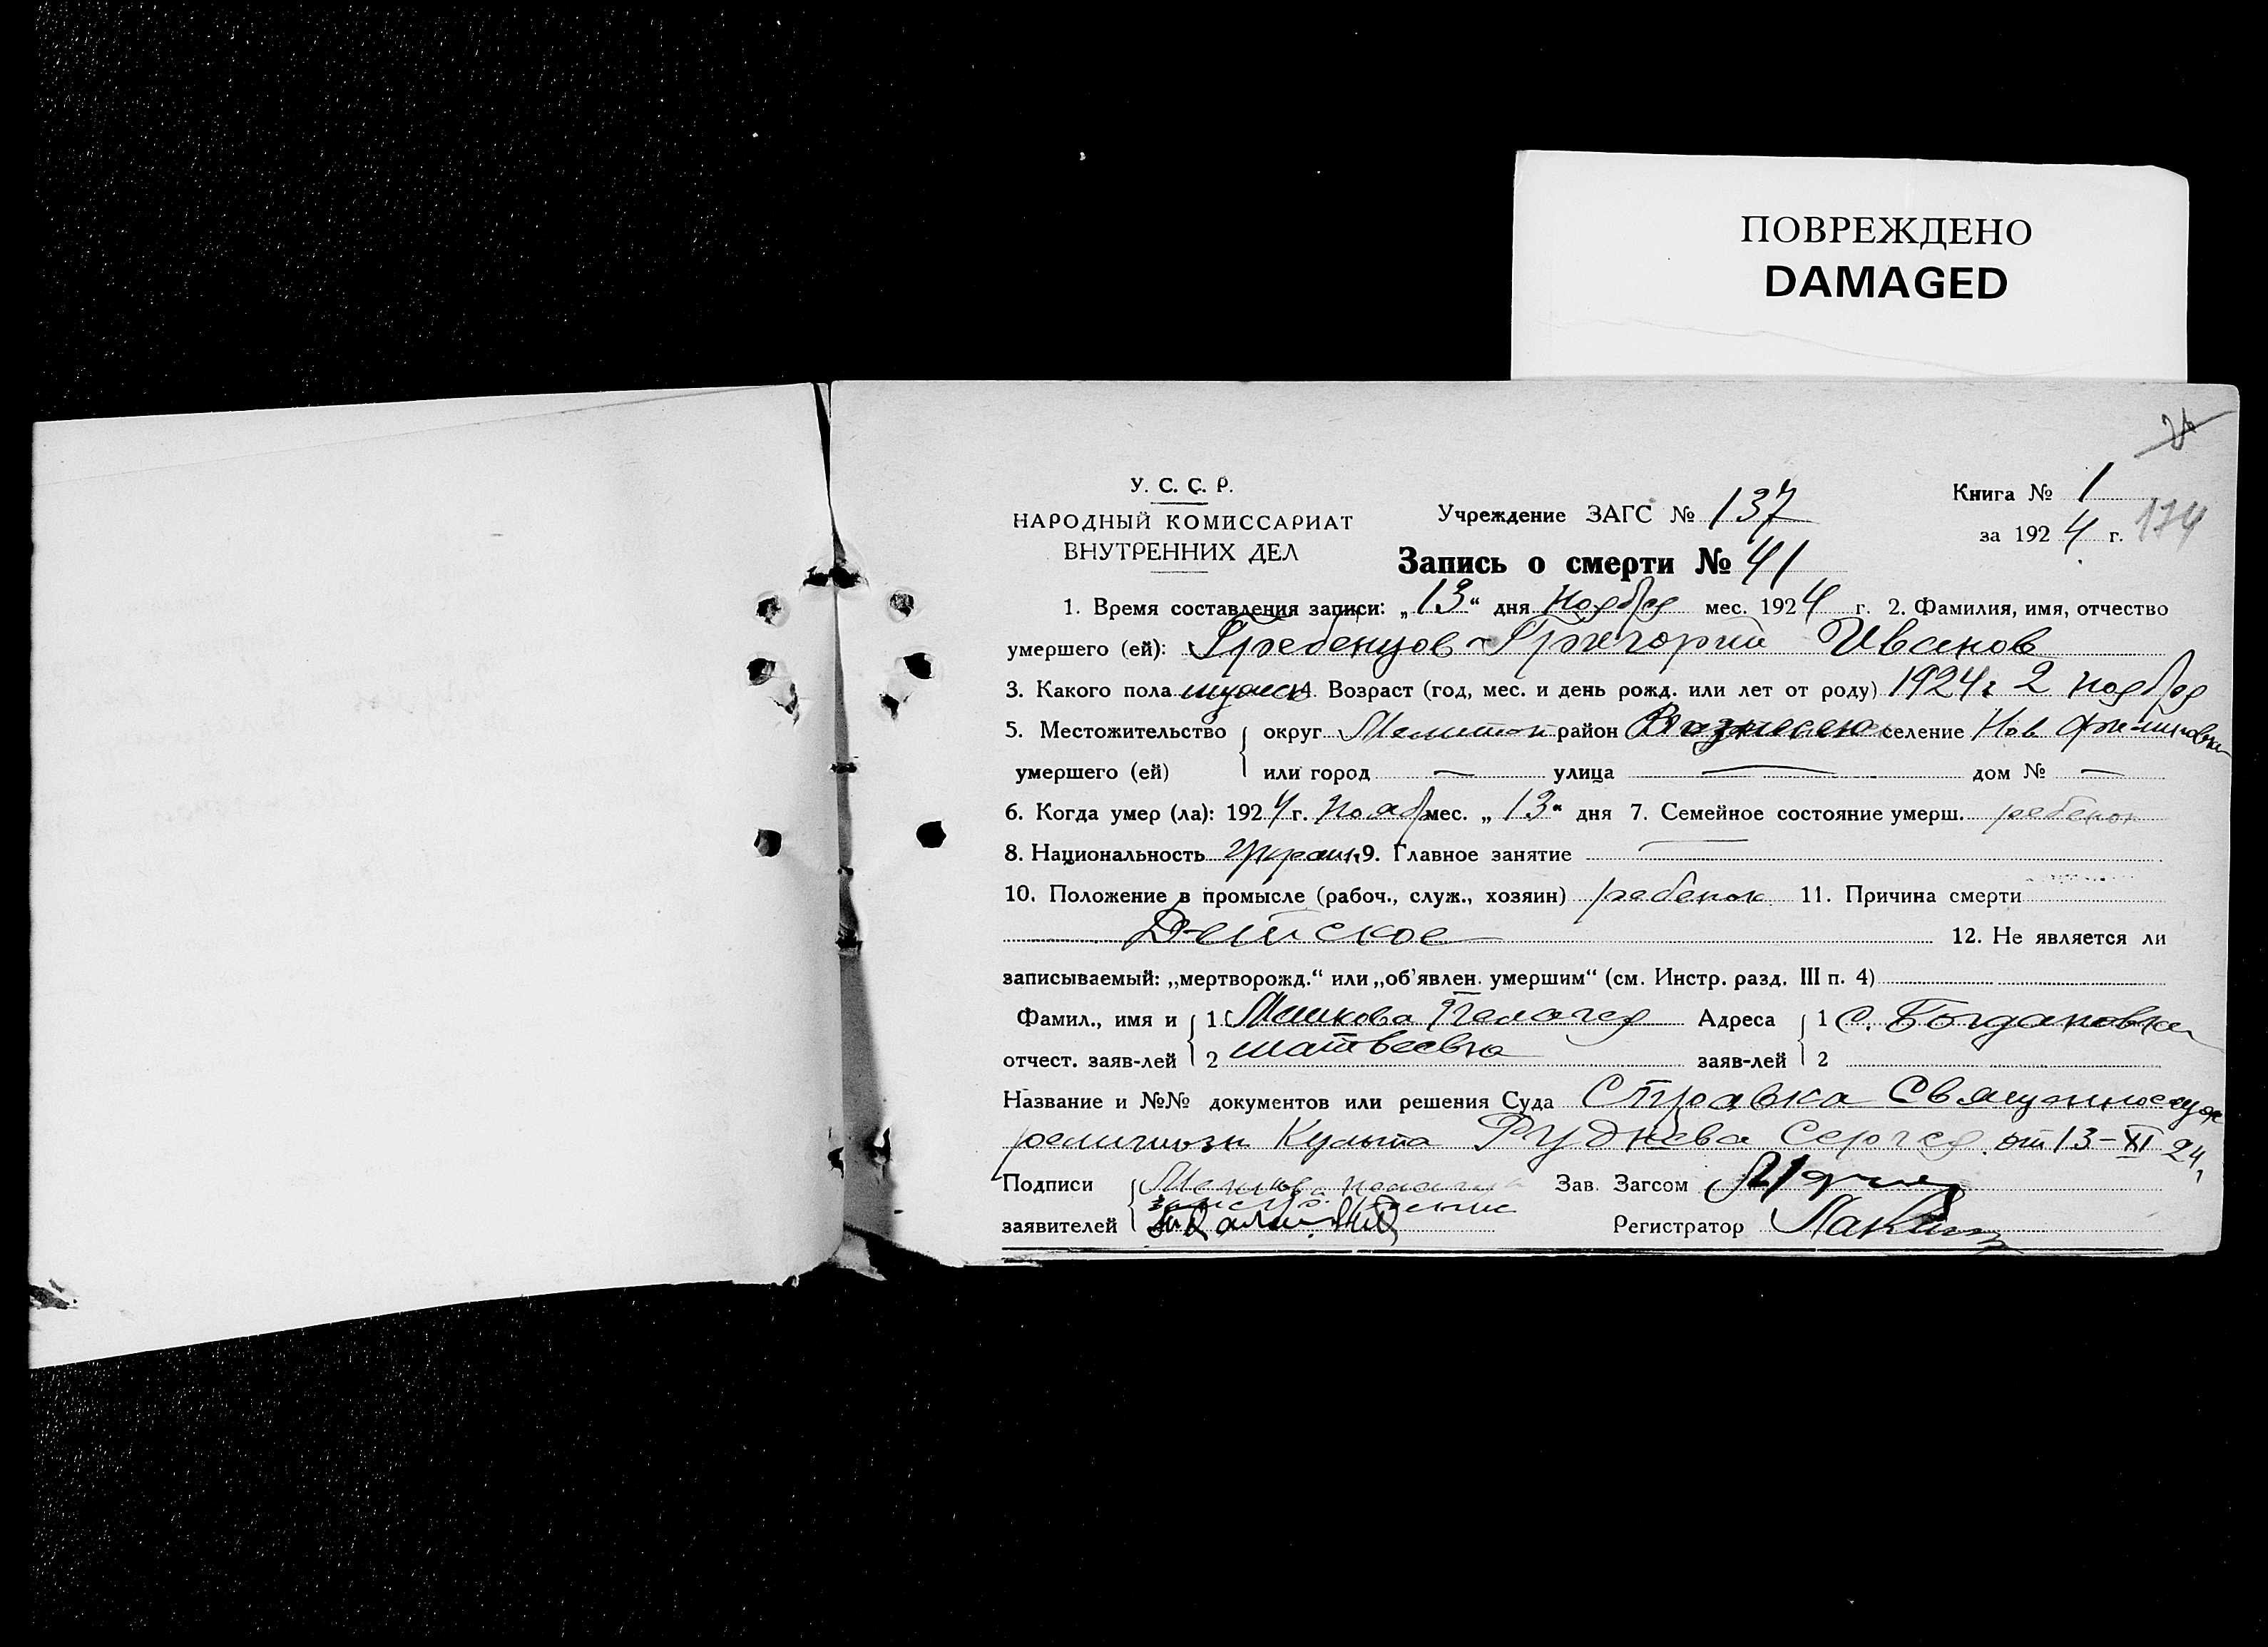 ПОВРЕЖДЕНО
DAMAGED
У. С. С. Р.
НАРОДНЫЙ КОМИССАРИАТ
ВНУТРЕННИХ ДЕЛ
Учреждение ЗАГС № 137
Книга № 1
за 1924 г. 174
Запись о смерти № 41
1. Время составления записи: „13“ дня ноября мес. 1924 г. 2. Фамилия, имя, отчество
умершего (ей): Гребенцов Григорий Иванов
3. Какого пола мужск 4. Возраст (год, мес. и день рожд. или лет от роду) 1924 г 2 ноября
5. Местожительство округ Мелитоп район селение Нов
умершего (ей) или город — улица — дом № —
6. Когда умер (ла): 1924 г. нояб мес. „13“ дня 7. Семейное состояние умерш. ребенок
8. Национальность украин. 9. Главное занятие —
10. Положение в промысле (рабоч., служ., хозяин) ребенок 11. Причина смерти
Детское 12. Не является ли
записываемый: „мертворожд.“ или „об'явлен. умершим“ (см. Инстр. разд. III п. 4)
Фамил., имя и 1 Мешкова Пелагея Адреса 1 с. Богдановка
отчест. заяв-лей 2 матвеевна заяв-лей 2
Название и №№ документов или решения Суда Справка Священнослуж
религиозн Культа Руднева Сергея от 13-XI 24
Подписи Зав. Загсом
заявителей Регистратор